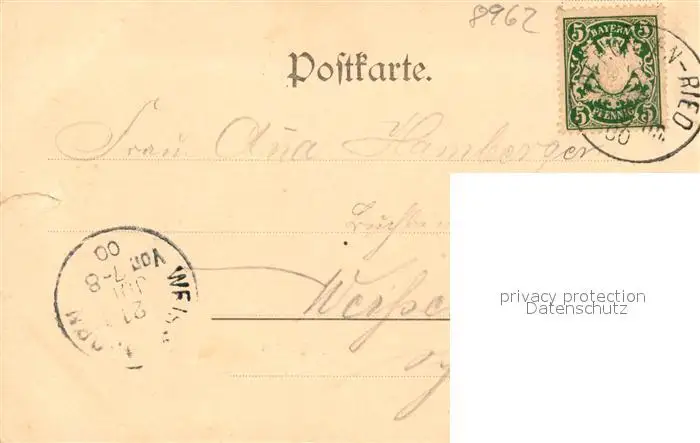 8962
Postkarte.
5 BAYERN 5
5 PFENNIG 5
N-RIED
00
Frau Ana Hamberger
Weisse
WEIS
HORN
21
JUL
Vor 7-8
00
privacy protection
Datenschutz